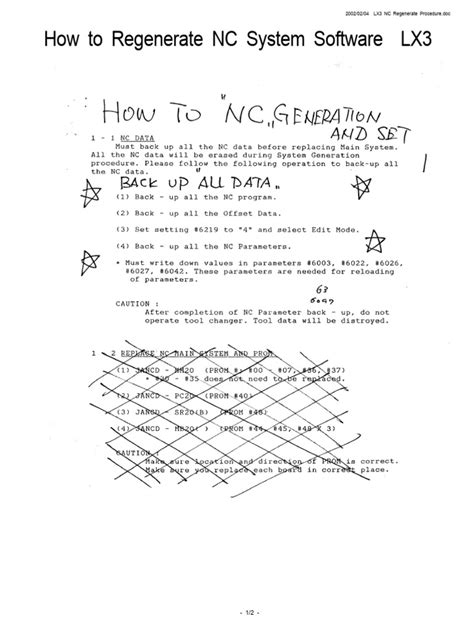 2002/02/04 LX3 NC Regenerate Procedure.doc
How to Regenerate NC System Software LX3
HOW TO "NC" GENERATION
AND SET
1 - 1 NC DATA
Must back up all the NC data before replacing Main System.
All the NC data will be erased during System Generation
procedure. Please follow the following operation to back-up all
the NC data.
BACK UP ALL DATA.
(1) Back - up all the NC program.
(2) Back - up all the Offset Data.
(3) Set setting #6219 to "4" and select Edit Mode.
(4) Back - up all the NC Parameters.
* Must write down values in parameters #6003, #6022, #6026,
#6027, #6042. These parameters are needed for reloading
of parameters.
63
6047
CAUTION :
After completion of NC Parameter back - up, do not
operate tool changer. Tool data will be distroyed.
1 - 2 REPLACE NC MAIN SYSTEM AND PROM
(1) JANCD - MM20 (PROM #: #00 - #07, #36, #37)
* #20 - #35 does not need to be replaced.
(2) JANCD - PC20 (PROM #40)
(3) JANCD - SR20(B) (PROM #48)
(4) JANCD - MB20( ) (PROM #44, #45, #48 X 3)
CAUTION :
Make sure location and direction of PROM is correct.
Make sure you replace each board in correct place.
- 1/2 -